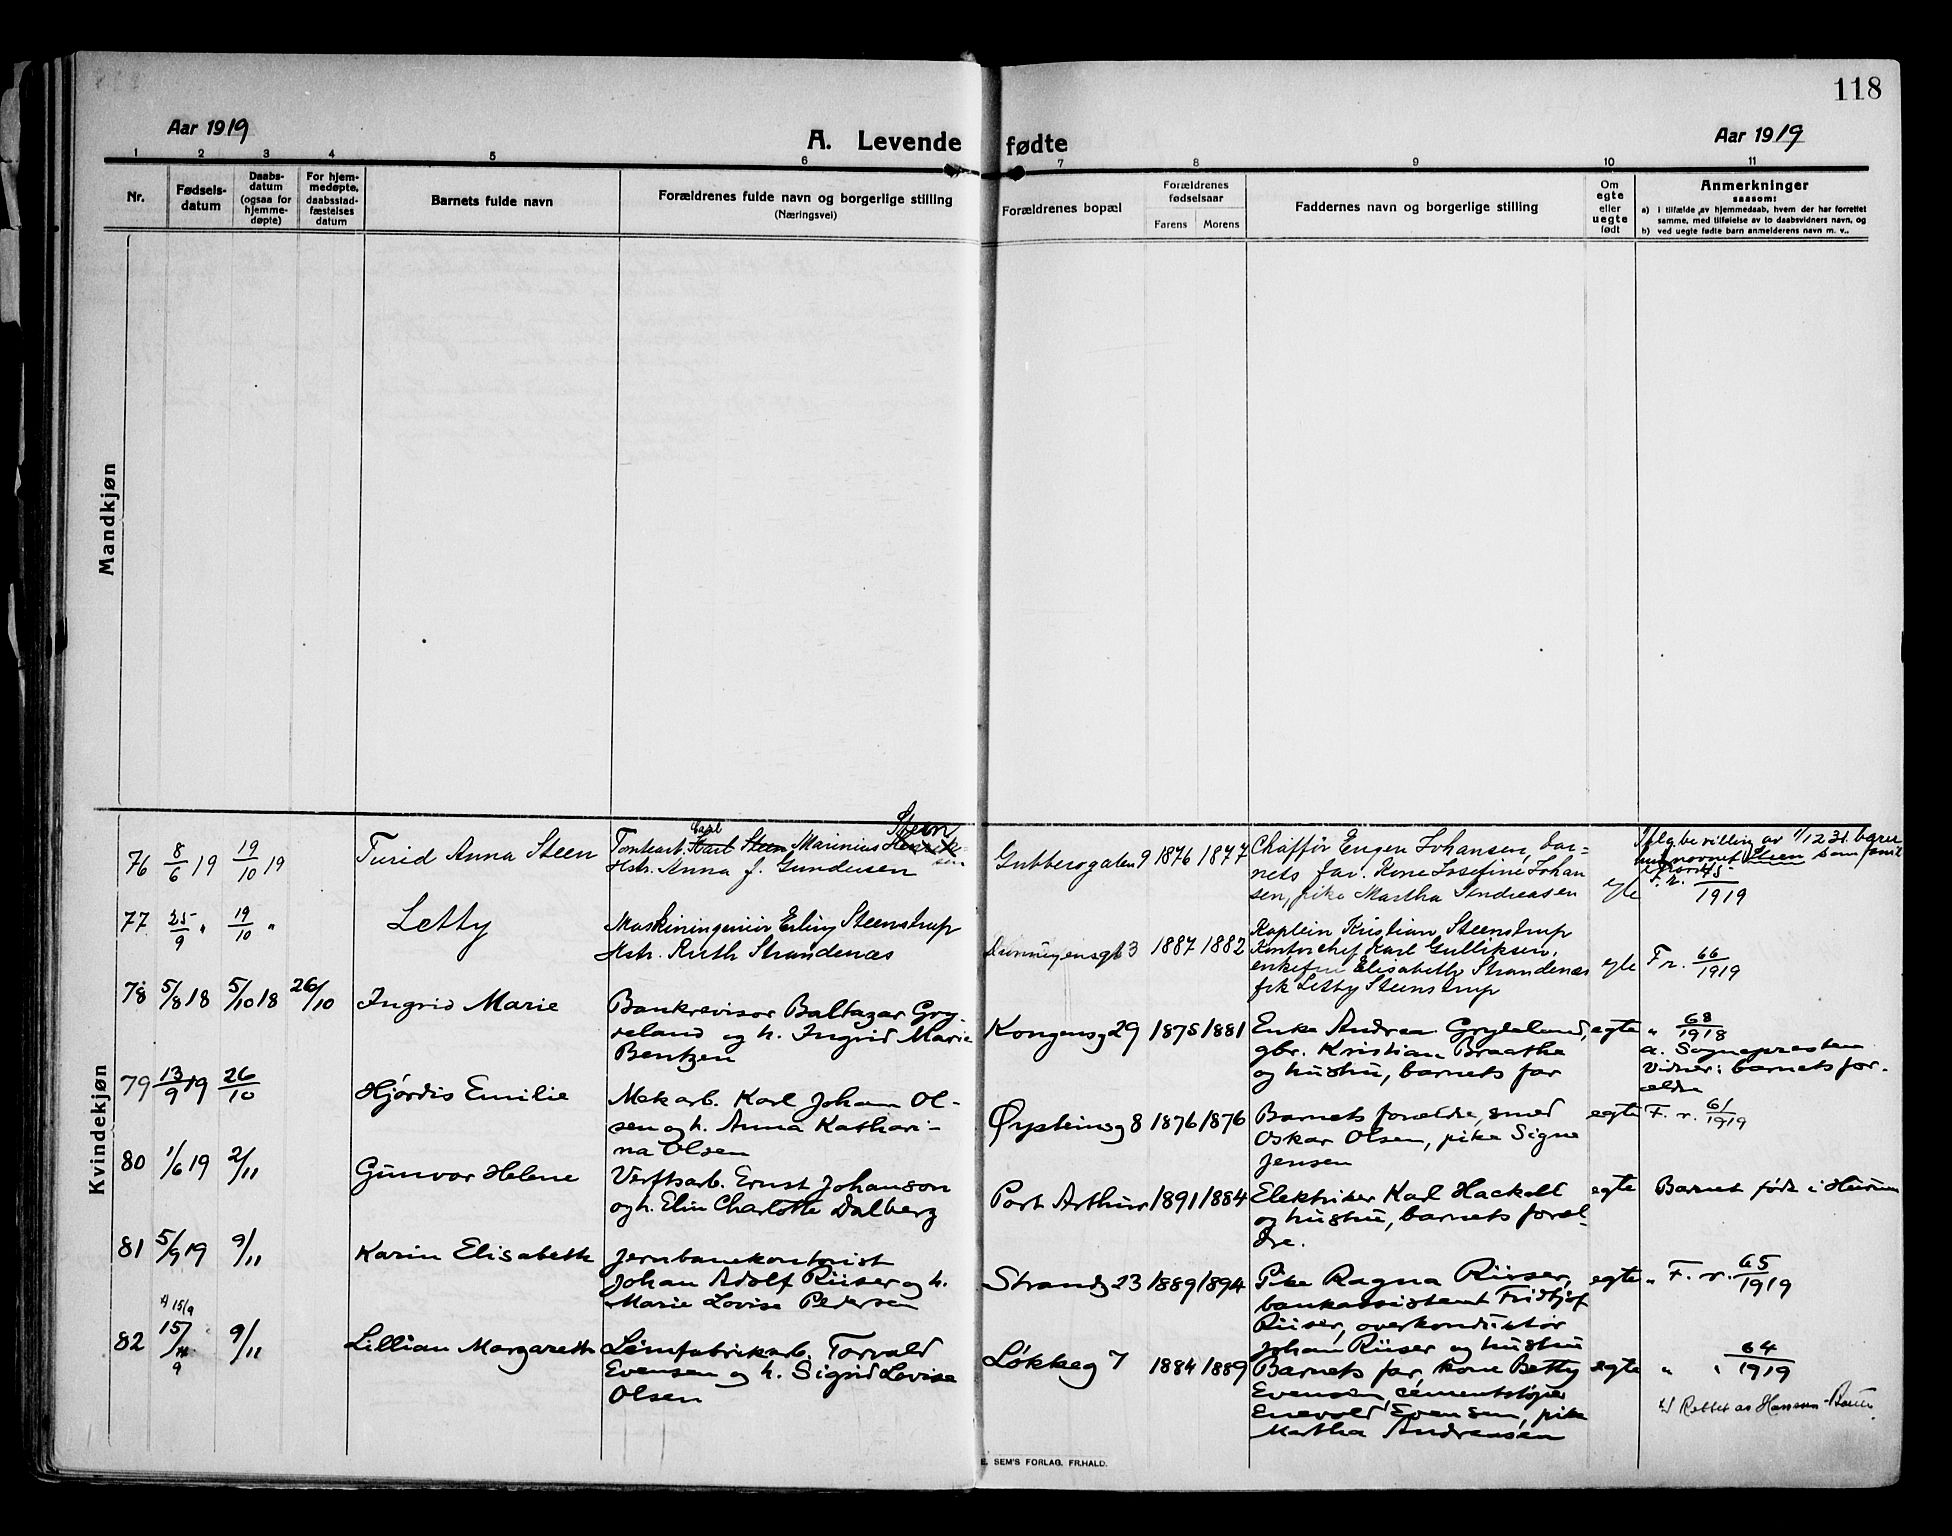 118
Aar 1919
A. Levende fødte
Aar 1919
1 2 3 4 5 6 7 8 9 10 11
Nr.
Fødsels-
datum
Daabs-
datum
(ogsaa for
hjemme-
døpte)
For hjem-
medøpte,
daabsstad-
fæstelses
datum
Barnets fulde navn
Forældrenes fulde navn og borgerlige stilling
(Næringsvei)
Forældrenes bopæl
Forældrenes
fødselsaar
Farens Morens
Faddernes navn og borgerlige stilling
Om
egte
eller
uegte
født
Anmerkninger
saasom:
a) I tilfælde av hjemmedaab, hvem der har forrettet
samme, med tilføielse av to daabsvidners navn, og
b) ved uegte fødte barn anmelderens navn m. v..
Mandkjøn
Kvindekjøn
76 8/6 19 19/10 19
Turid Anna Steen
Carl Steen
Tomtearb. Karl Steen Marinius Henrik-
sen
Hstr. Anna J. Gundersen
Gubberogaten 9 1876 1877
Chaffør Eugen Johansen, bar-
nets far. Kone Josefine Johan
sen, pike Martha Andreasen
egte
Ifølg bevilling av 1/12 31 bærer
navnet Steen som famil
F. r. 45/1919
77 25/9 " 19/10 "
Letty
Maskiningeniør Erling Steenstrup
Hstr. Ruth Strandenæs
Dronningensgt 3 1887 1882
Kaptein Kristian Steenstrup
Kontorchef Karl Gulliksen,
enkefru Elisabeth Strandenæs
frk Letty Steenstrup
egte
F r. 66/1919
78 5/8 18 5/10 18 26/10
Ingrid Marie
Bankrevisor Baltazar Gry-
seland og h. Ingrid Marie
Bentzen
Kongensg 29 1875 1881
Enke Andrea Gryseland,
gbr. Kristian Braathe
og hustru, barnets far
egte
" 68/1918
a. Sognepresten
Vidner: barnets for-
ældre
79 13/9 19 26/10
Hjördis Emilie
Mek arb. Karl Johan Ol-
sen og h. Anna Kathari-
na Olsen
Øysteinsg 8 1876 1876
Barnets forældre, smed
Oskar Olsen, pike Signe
Jensen
egte
F. r. 61/1919
80 1/6 19 2/11
Gunvor Helene
Verftsarb. Ernst Johanson
og h. Elin Charlotte Dalberg
Port Arthur 1891 1884
Elektriker Karl Hackell
og hustru, barnets foræl-
dre.
egte
Barnet født i Hurum
81 5/9 19 9/11
Karin Elisabeth
Jernbanekontorist
Johan Adolf Riiser og h.
Marie Lovise Pedersen
Strandg 23 1889 1894
Pike Ragna Riiser,
bankassistent Fridtjof
Riiser, overkonduktør
Johan Riiser og hustru
egte
" F. r. 65/1919
x) 15/9
82 15/9 9/11
Lillian Margareth
Limfabrikarb. Torvald
Evensen og h. Sigrid Lovise
Olsen
Løkkeg 7 1884 1889
Barnets far, kone Betty
Evensen, cementstøper
Enevold Evensen, pike
Martha Andreasen
egte
" " 64/1919
x) Rettet av Hansson-
E. SEM'S FORLAG. FR.HALD.